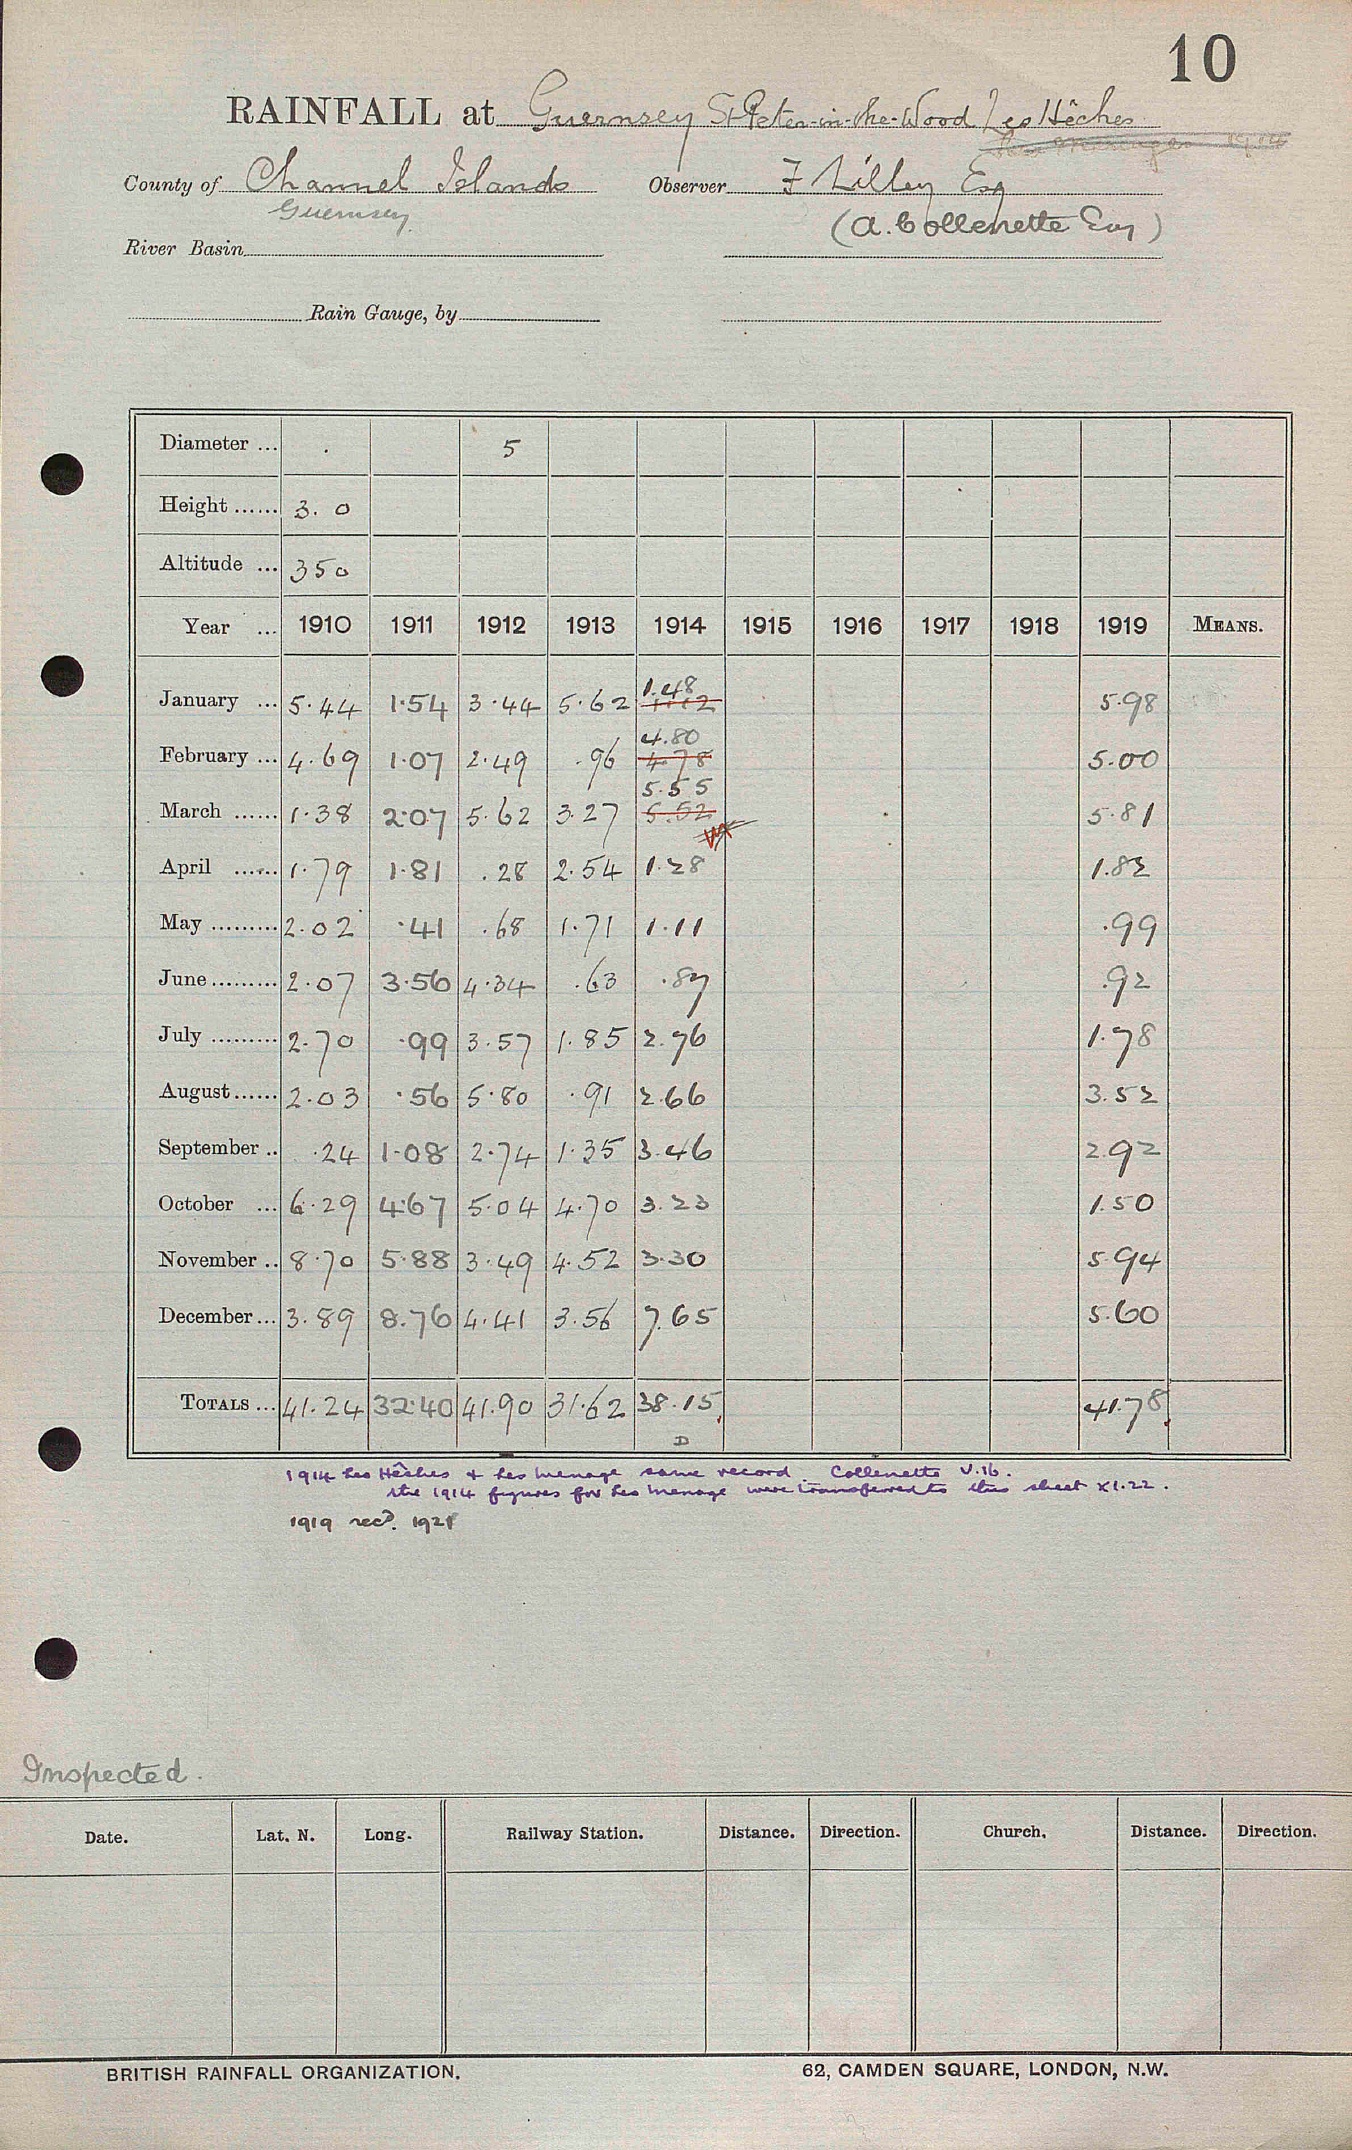 10
RAINFALL at Guernsey St Peter-in-the-Wood Les Hêches
County of Channel Islands Observer F Lilley Esq
Guernsey (A. Collenette Esq)
River Basin
Rain Gauge, by
Diameter ... . 5
Height ...... 3. 0
Altitude ... 350
Year ... 1910 1911 1912 1913 1914 1915 1916 1917 1918 1919 MEANS.
1.48
January ... 5.44 1.54 3.44 5.62 5.98
4.80
February ... 4.69 1.07 2.49 .96 4.78 5.00
5.55
March ...... 1.38 2.07 5.62 3.27 5.52 5.81
April ...... 1.79 1.81 .28 2.54 1.28 1.82
May ......... 2.02 .41 .68 1.71 1.11 .99
June ......... 2.07 3.56 4.34 .63 .87 .92
July ......... 2.70 .99 3.57 1.85 2.76 1.78
August...... 2.03 .56 5.80 .91 2.66 3.52
September .. .24 1.08 2.74 1.35 3.46 2.92
October ... 6.29 4.67 5.04 4.70 3.23 1.50
November .. 8.70 5.88 3.49 4.52 3.30 5.94
December ... 3.89 8.76 4.41 3.56 7.65 5.60
TOTALS ... 41.24 32.40 41.90 31.62 38.15 41.78
D
1914 Les Hêches & Les Menage same record. Collenette V.16.
the 1914 figures for Les Menage were transferred to this sheet XI.22.
1919 recd. 1921
Inspected.
Date. Lat. N. Long. Railway Station. Distance. Direction. Church. Distance. Direction.
BRITISH RAINFALL ORGANIZATION. 62, CAMDEN SQUARE, LONDON, N.W.